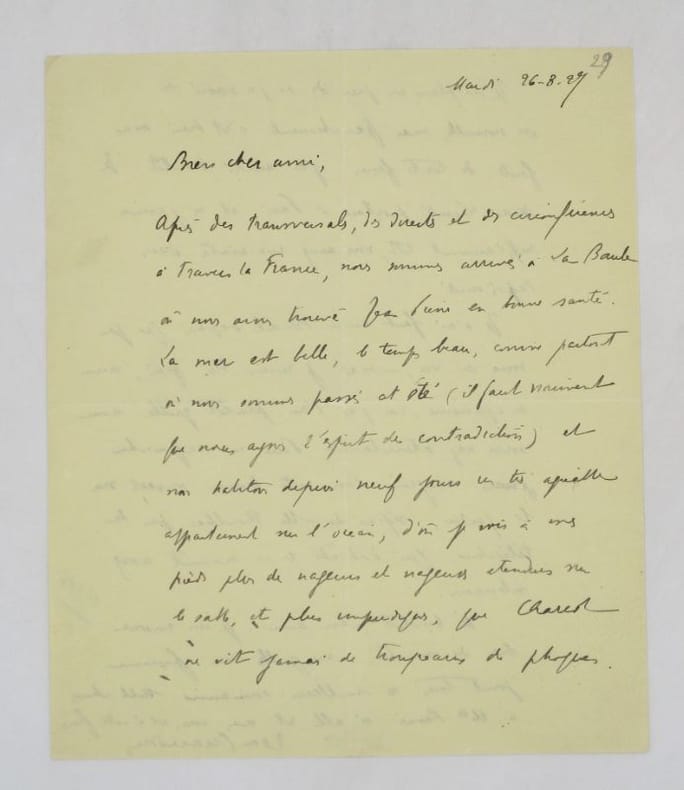 29
Mardi 26-8-29
Bien cher ami,
Après des transversales, des directs et des circonférences
à travers la France, nous sommes arrivés à La Baule
où nous avons trouvé Jean Pierre en bonne santé.
La mer est belle, le temps beau, comme partout
où nous sommes passés cet été (il faut vraiment
que nous ayons l'esprit de contradiction) et
nous habitons depuis neuf jours un très agréable
appartement sur l'océan, d'où je vois à mes
pieds plus de nageurs et nageuses étendus sur
le sable, et plus impudiques, que Charcot
ne vit jamais de troupeaux de phoques.